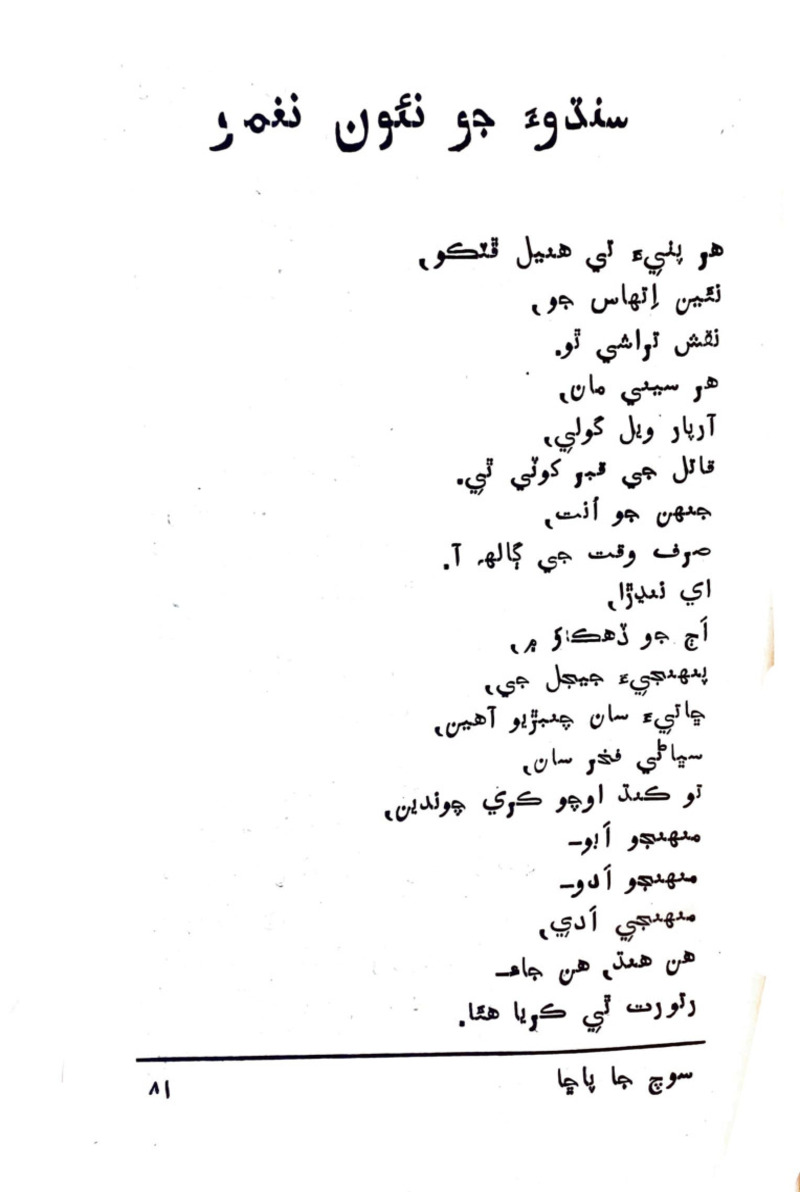 سنڌوءَ جو نئون نغمو
هر پٺيءَ تي هنيل ڦٽڪو،
نئين اِتهاس جو،
نقش تراشي ٿو.
هر سيني مان،
آرپار ويل گولي،
قاتل جي قبر کوٽي ٿي.
جنهن جو اُنت،
صرف وقت جي ڳالهہ آ.
اي ننڍڙا،
اَڄ جو ڏهڪاءُ ۾،
پنهنجيءَ جيجل جي،
ڇاتيءَ سان چنبڙيو آهين،
سڀاڻي فخر سان،
تو ڪنڌ اوچو ڪري چوندين،
منهنجو اَبو۔
منهنجو اَدو۔
منهنجي اَدي،
هن هنڌ، هن جاءِ۔
رتورت ٿي ڪريا هئا.
سوچ جا پاڇا
۸۱